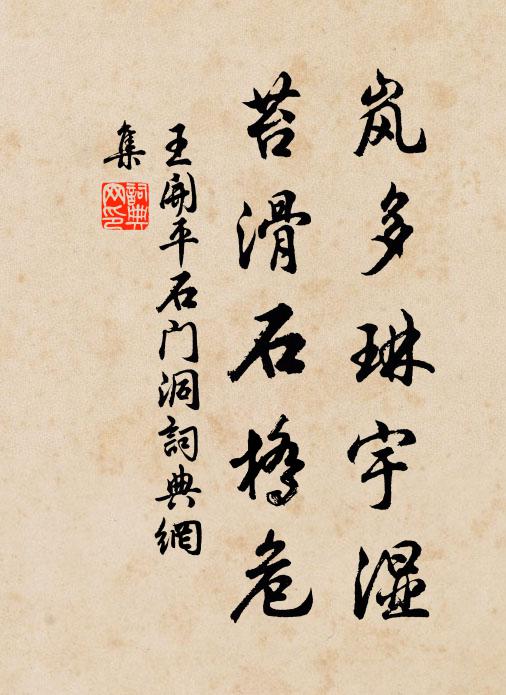 岚多琳宇湿
苔滑石桥危
王開平石门洞詞典網
集
詞典
网印